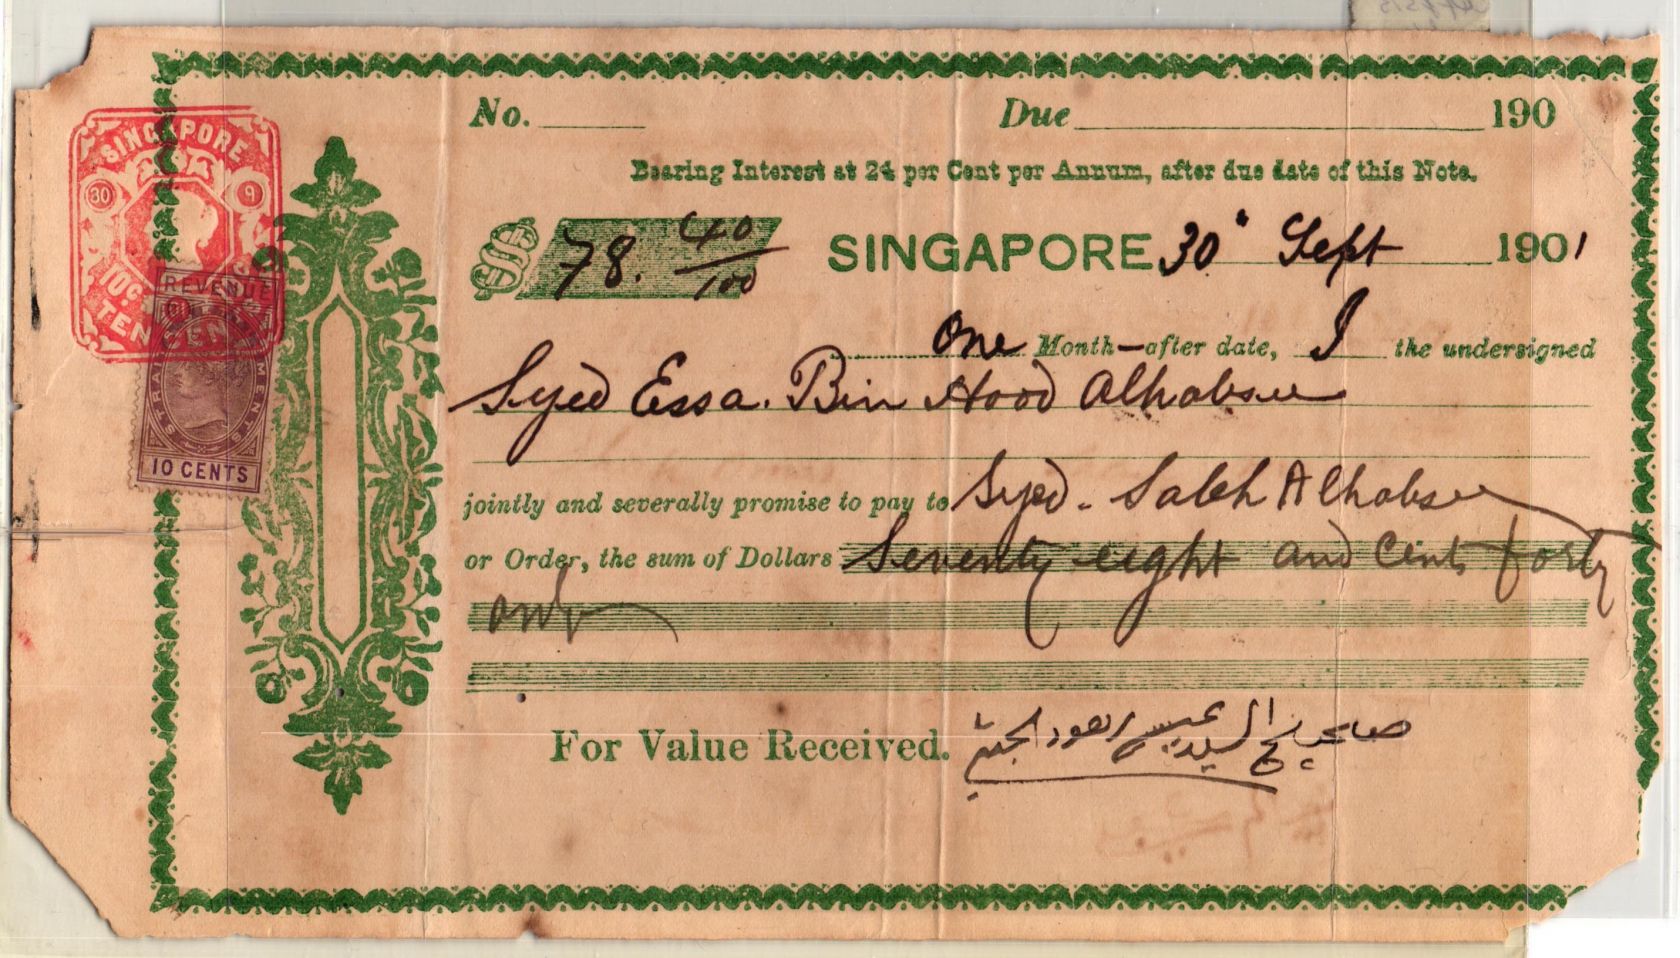 SINGAPORE
30 9
10c
TEN CENTS
REVENUE
STRAITS SETTLEMENTS
10 CENTS
No. Due 190
Bearing Interest at 24 per Cent per Annum, after due date of this Note.
$ 78. 40/100 SINGAPORE 30 Sept 1901
One Month after date, I the undersigned
Syed Essa. Bin Hood Alhabsee
jointly and severally promise to pay to Syed. Saleh Alhabsee
or Order, the sum of Dollars Seventy eight and Cents forty
only
For Value Received. السيد عيسى هود الحبشي